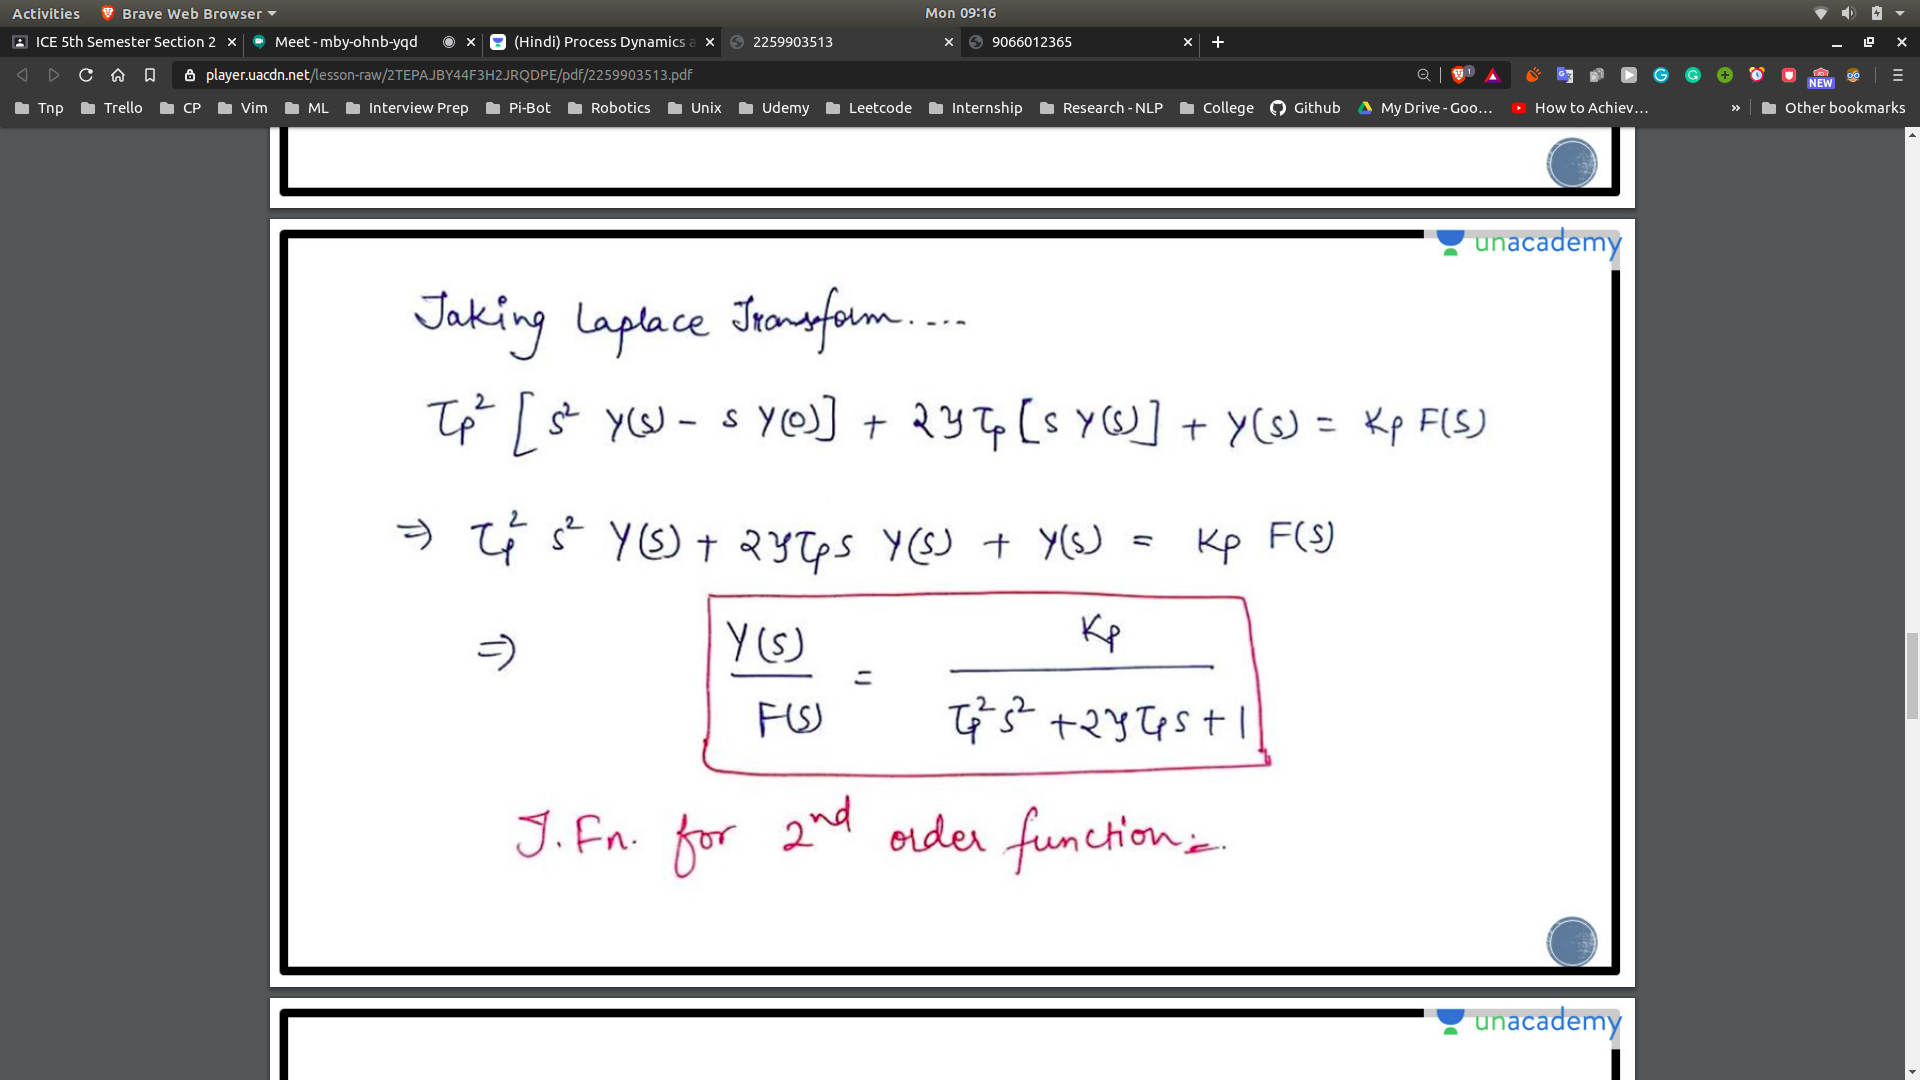 Activities Brave Web Browser Mon 09:16
ICE 5th Semester Section 2 Meet - mby-ohnb-yqd (Hindi) Process Dynamics a 2259903513 9066012365
player.uacdn.net/lesson-raw/2TEPAJBY44F3H2JRQDPE/pdf/2259903513.pdf 1 NEW
Tnp Trello CP Vim ML Interview Prep Pi-Bot Robotics Unix Udemy Leetcode Internship Research - NLP College Github My Drive - Goo... How to Achiev... » Other bookmarks
unacademy
Taking Laplace Transform.....
τp² [s² Y(s) - s Y(0)] + 2ζτp [s Y(s)] + Y(s) = Kp F(s)
⇒ τp² s² Y(s) + 2ζτps Y(s) + Y(s) = Kp F(s)
⇒ Y(s) / F(s) = Kp / τp²s² + 2ζτps + 1
T.Fn. for 2nd order function:-
unacademy